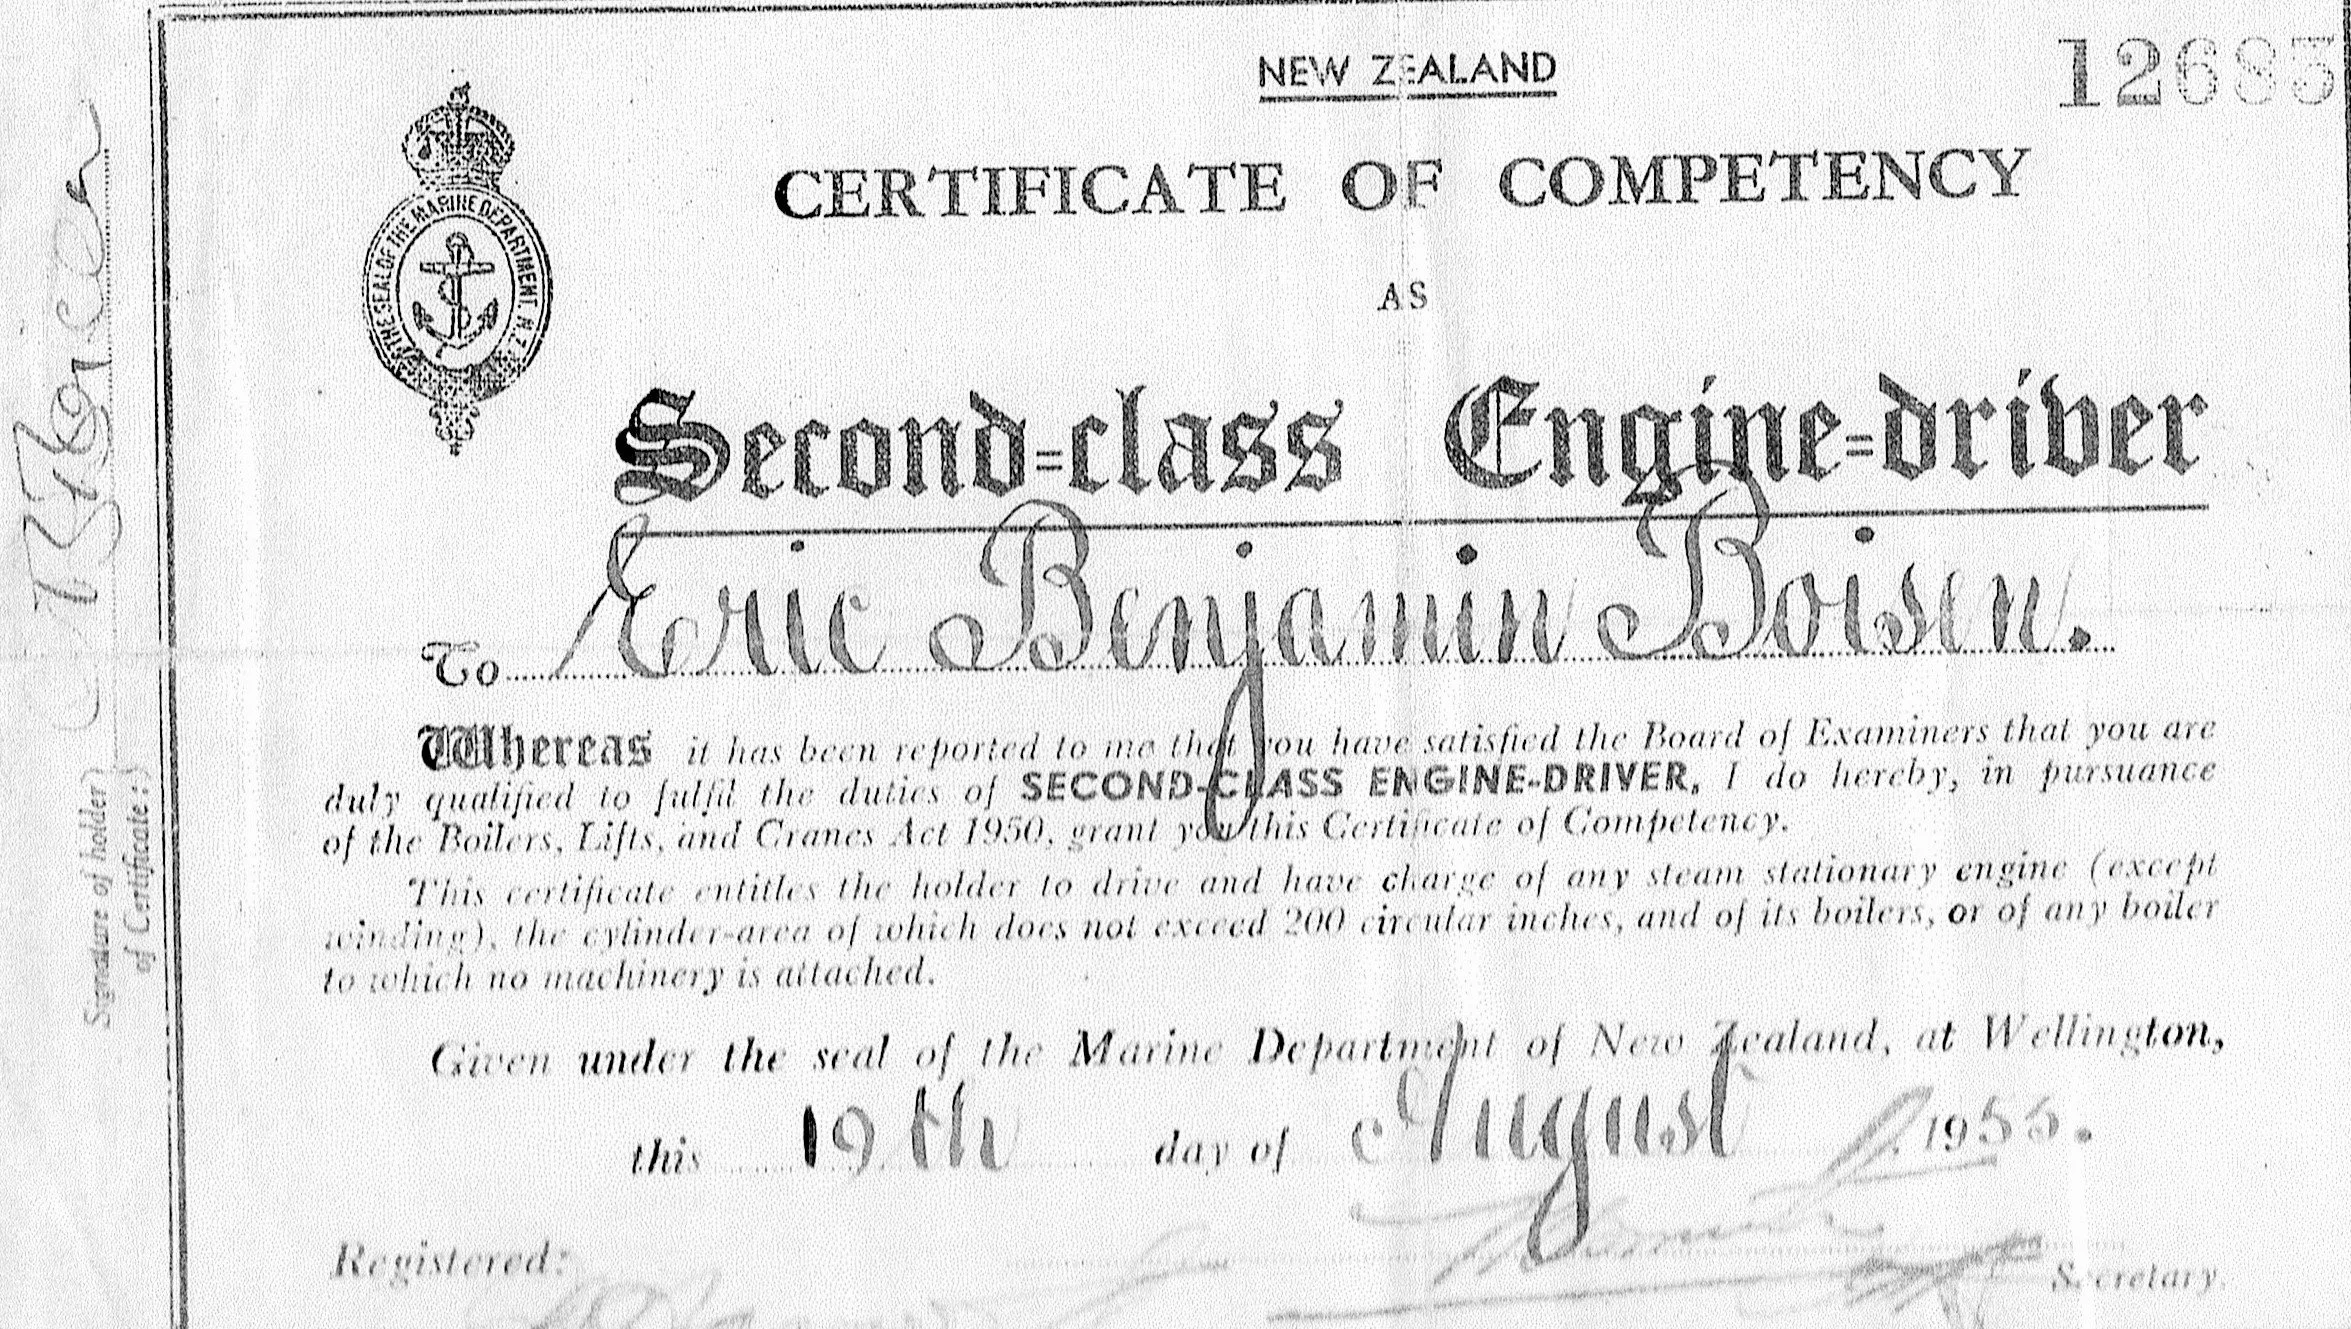 NEW ZEALAND
12685
CERTIFICATE OF COMPETENCY
THE SEAL OF THE MARINE DEPARTMENT. N.Z.
AS
Second=class Engine=driver
To Eric Benjamin Boisen.
Whereas it has been reported to me that you have satisfied the Board of Examiners that you are
duly qualified to fulfil the duties of SECOND-CLASS ENGINE-DRIVER, I do hereby, in pursuance
of the Boilers, Lifts, and Cranes Act 1950, grant you this Certificate of Competency.
This certificate entitles the holder to drive and have charge of any steam stationary engine (except
winding), the cylinder-area of which does not exceed 200 circular inches, and of its boilers, or of any boiler
to which no machinery is attached.
Given under the seal of the Marine Department of New Zealand, at Wellington,
this 19th day of August 1955.
Registered:
Secretary.
Signature of holder
of Certificate:
Boisen